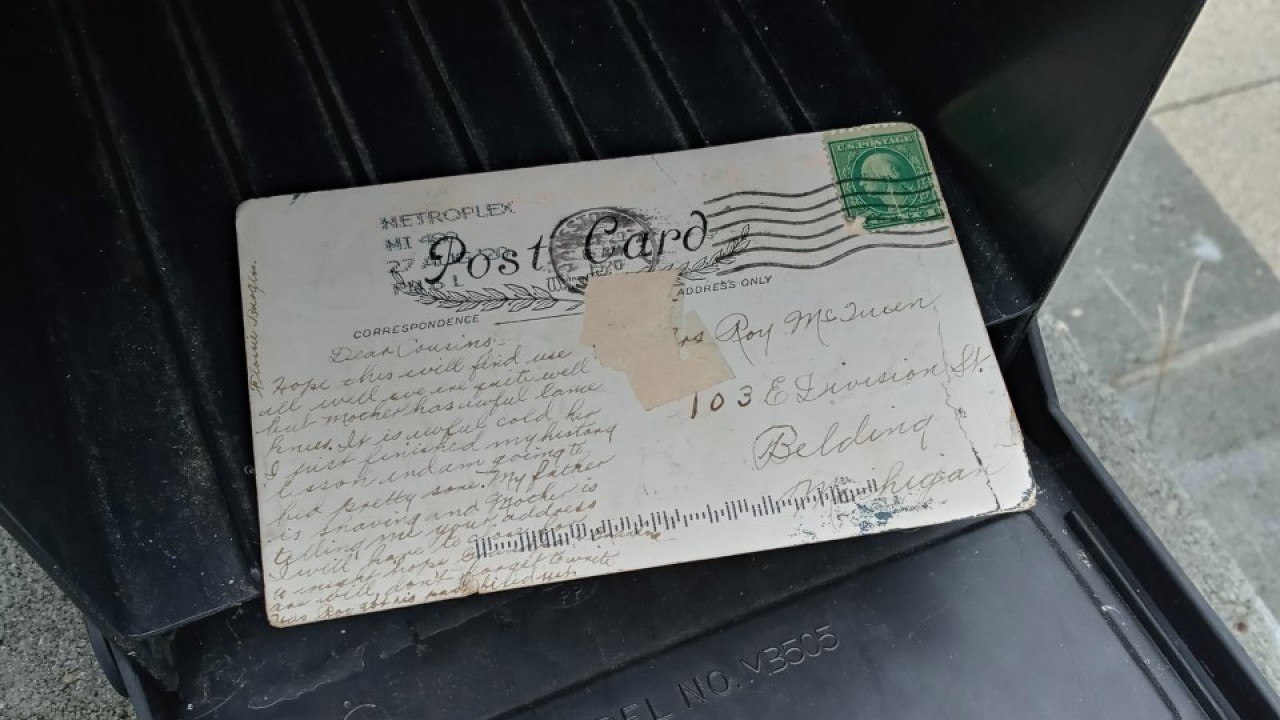 U.S. POSTAGE
METROPLEX
MI 480
PM 8 L
Post Card
CORRESPONDENCE
ADDRESS ONLY
Dear Cousins:-
Hope this will find use
all well we are quite well
but Mother has awful lame
knees. It is awful cold her
I just finished my history
lesson and am going to
bed pretty soon. My father
is shaving and Mother is
telling me your address
I will have to
to night hope
are well. don't forget to write
Roy got his pants
Roy McQueen
103 E Division St.
Belding
Michigan
MODEL NO. MB505